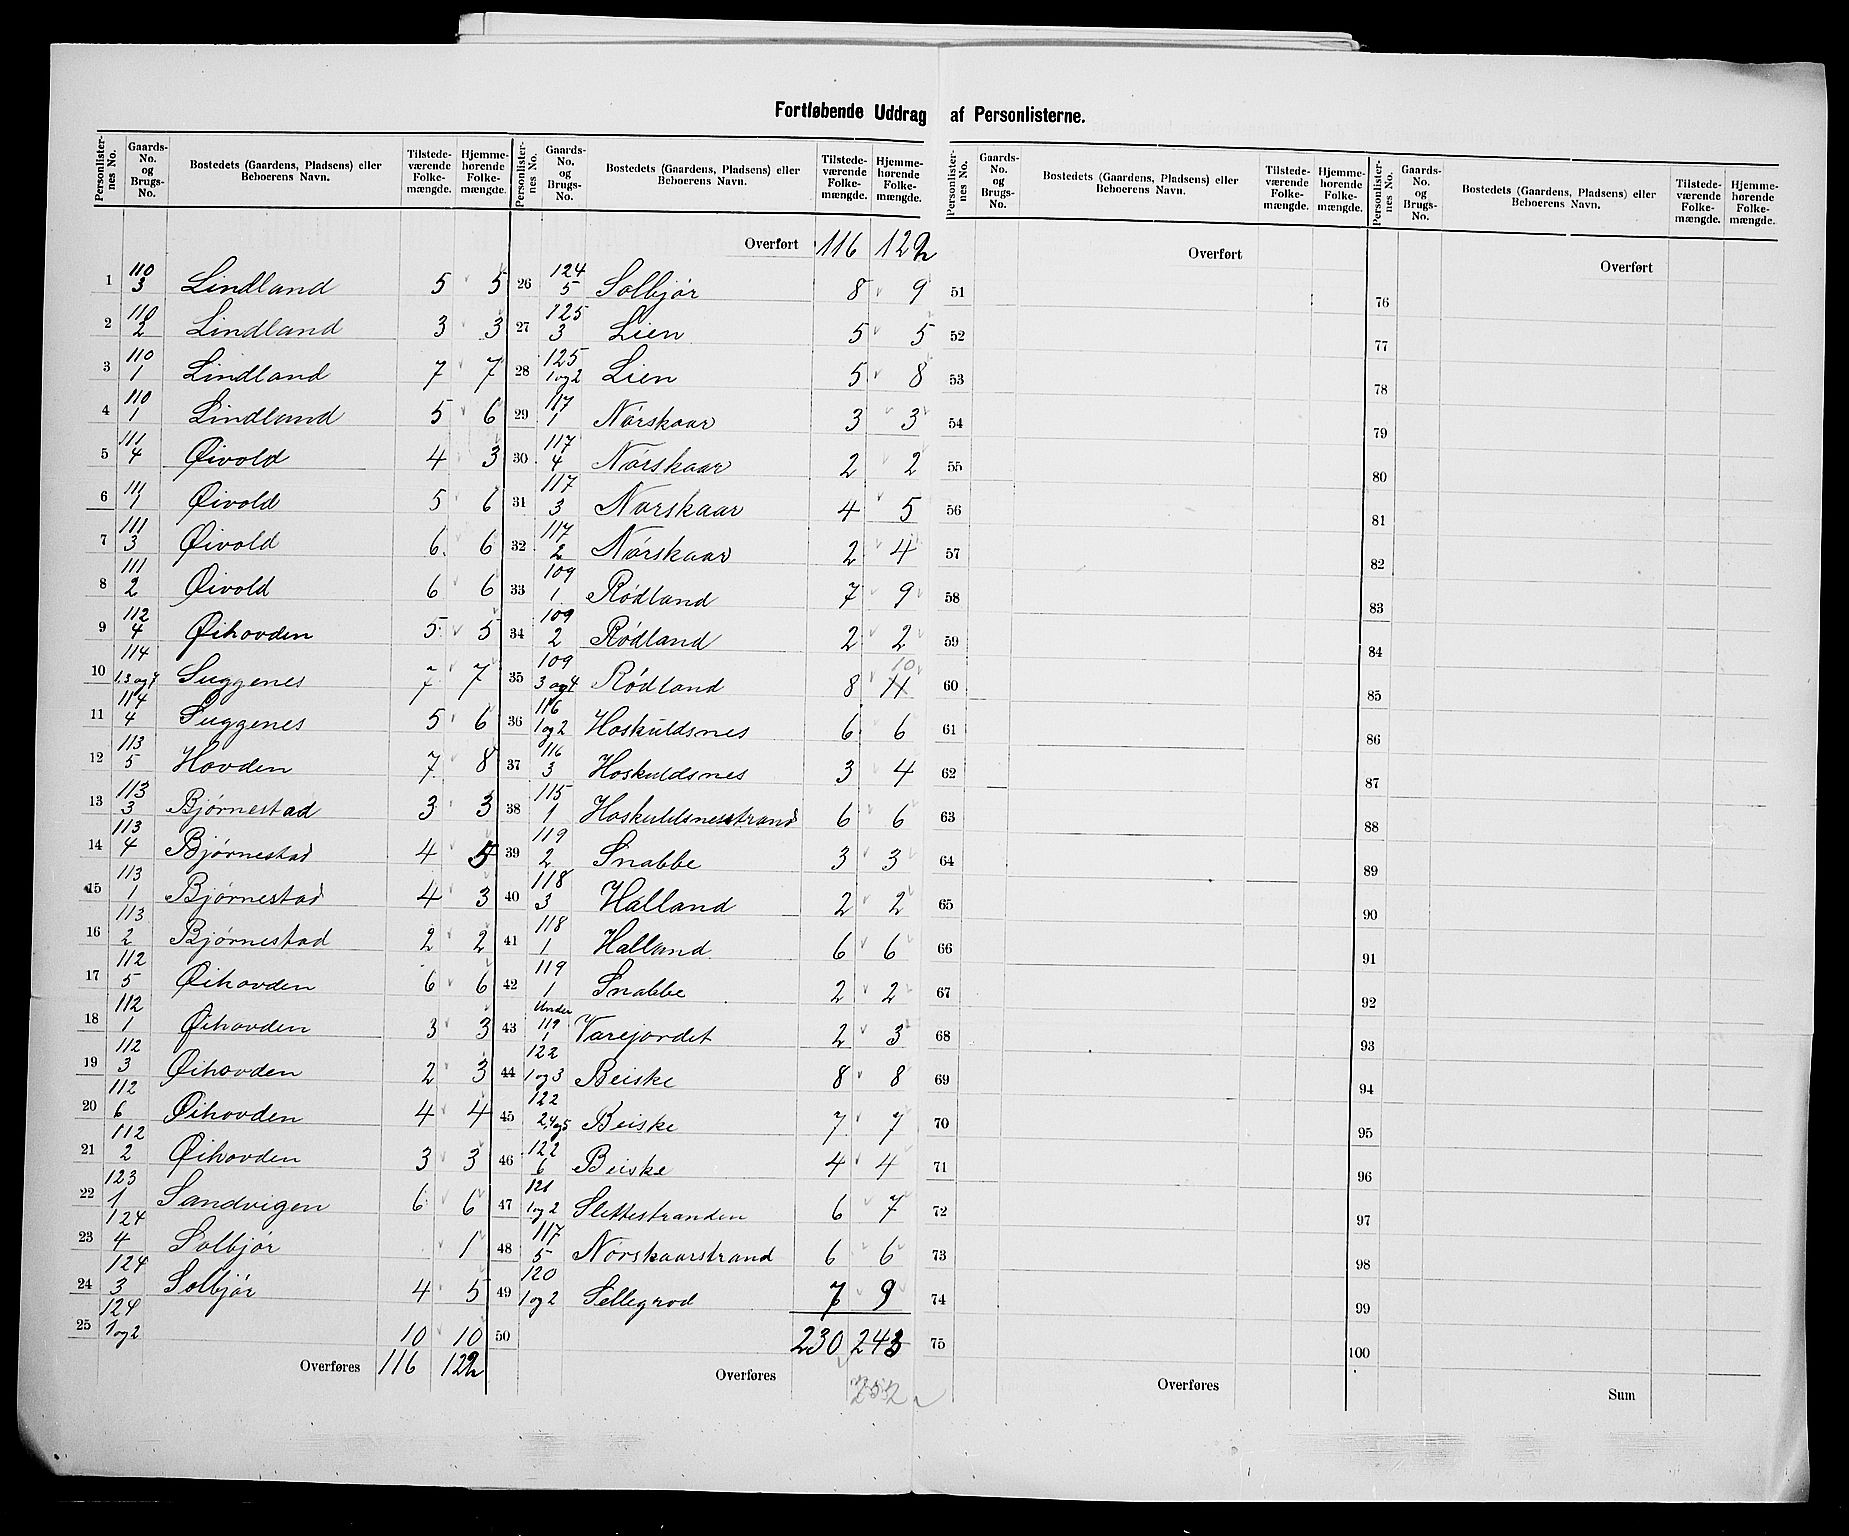 Fortløbende Uddrag af Personlisterne.
Personlister-nes No. | Gaards-No. og Brugs-No. | Bostedets (Gaardens, Pladsens) eller Beboerens Navn. | Tilstede-værende Folke-mængde. | Hjemme-hørende Folke-mængde.
1 | 110/3 | Lindland | 5 | 5
2 | 110/2 | Lindland | 3 | 3
3 | 110/1 | Lindland | 7 | 7
4 | 110/1 | Lindland | 5 | 6
5 | 111/4 | Øivold | 4 | 3
6 | 111/1 | Øivold | 5 | 6
7 | 111/3 | Øivold | 6 | 6
8 | 111/2 | Øivold | 6 | 6
9 | 112/4 | Øihovden | 5 | 5
10 | 114/1.3 og 7 | Suggenes | 7 | 7
11 | 114/4 | Suggenes | 5 | 6
12 | 113/5 | Hovden | 7 | 8
13 | 113/3 | Bjørnestad | 3 | 3
14 | 113/4 | Bjørnestad | 4 | 5
15 | 113/1 | Bjørnestad | 4 | 3
16 | 113/2 | Bjørnestad | 2 | 2
17 | 112/5 | Øihovden | 6 | 6
18 | 112/1 | Øihovden | 3 | 3
19 | 112/3 | Øihovden | 2 | 3
20 | 112/6 | Øihovden | 4 | 4
21 | 112/2 | Øihovden | 3 | 3
22 | 123/1 | Sandvigen | 6 | 6
23 | 124/4 | Solbjør | | 1
24 | 124/3 | Solbjør | 4 | 5
25 | 124/1og2 | | 10 | 10
Overføres 116 122
Personlister-nes No. | Gaards-No. og Brugs-No. | Bostedets (Gaardens, Pladsens) eller Beboerens Navn. | Tilstede-værende Folke-mængde. | Hjemme-hørende Folke-mængde.
Overført 116 122
26 | 124/5 | Solbjør | 8 | 9
27 | 125/3 | Lien | 5 | 5
28 | 125/1og2 | Lien | 5 | 8
29 | 117/1 | Nørskaar | 3 | 3
30 | 117/4 | Nørskaar | 2 | 2
31 | 117/3 | Nørskaar | 4 | 5
32 | 117/2 | Nørskaar | 2 | 4
33 | 109/1 | Rødland | 7 | 9
34 | 109/2 | Rødland | 2 | 2
35 | 109/3 og 4 | Rødland | 8 | 11 10
36 | 116/1og2 | Hoskuldsnes | 6 | 6
37 | 116/3 | Hoskuldsnes | 3 | 4
38 | 115/1 | Hoskuldsnesstrand | 6 | 6
39 | 119/2 | Snabbe | 3 | 3
40 | 118/3 | Halland | 2 | 2
41 | 118/1 | Halland. | 6 | 6
42 | 119/1 | Snabbe | 2 | 2
43 | Under 119/1 | Varejordet | 2 | 3
44 | 122/1og3 | Beiske | 8 | 8
45 | 122/2,4og5 | Beiske | 7 | 7
46 | 122/6 | Beiske | 4 | 4
47 | 121/1og2 | Slettestranden | 6 | 7
48 | 117/5 | Nørskaarstrand | 6 | 6
49 | 120/1og2 | Sellegrod | 7 | 9
50 | | | 230 | 243
Overføres
252
Personlister-nes No. | Gaards-No. og Brugs-No. | Bostedets (Gaardens, Pladsens) eller Beboerens Navn. | Tilstede-værende Folke-mængde. | Hjemme-hørende Folke-mængde.
Overført
51
52
53
54
55
56
57
58
59
60
61
62
63
64
65
66
67
68
69
70
71
72
73
74
75
Overføres
Personlister-nes No. | Gaards-No. og Brugs-No. | Bostedets (Gaardens, Pladsens) eller Beboerens Navn. | Tilstede-værende Folke-mængde. | Hjemme-hørende Folke-mængde.
Overført
76
77
78
79
80
81
82
83
84
85
86
87
88
89
90
91
92
93
94
95
96
97
98
99
100
Sum